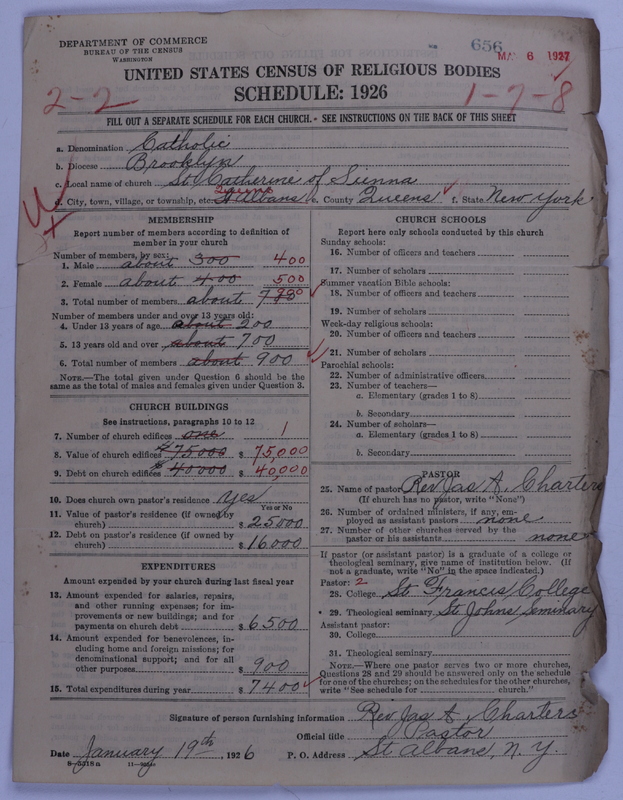 DEPARTMENT OF COMMERCE
BUREAU OF THE CENSUS
WASHINGTON
656
MAR 6 1927
UNITED STATES CENSUS OF RELIGIOUS BODIES
SCHEDULE: 1926
2-2
1-7-8
FILL OUT A SEPARATE SCHEDULE FOR EACH CHURCH.—SEE INSTRUCTIONS ON THE BACK OF THIS SHEET
a. Denomination Catholic
b. Diocese Brooklyn
c. Local name of church St Catherine of Sienna
d. City, town, village, or township, etc. St Albans e. County Queens f. State New York
MEMBERSHIP
Report number of members according to definition of
member in your church
Number of members, by sex:
1. Male about 300 400
2. Female about 400 500
3. Total number of members about 900
Number of members under and over 13 years old:
4. Under 13 years of age about 200
5. 13 years old and over about 700
6. Total number of members about 900
NOTE.—The total given under Question 6 should be the
same as the total of males and females given under Question 3.
CHURCH BUILDINGS
See instructions, paragraphs 10 to 12
7. Number of church edifices one 1
8. Value of church edifices $75000 $ 75,000
9. Debt on church edifices $40000 $ 40,000
10. Does church own pastor's residence yes
Yes or No
11. Value of pastor's residence (if owned by
church) $ 25000
12. Debt on pastor's residence (if owned by
church) $ 16000
EXPENDITURES
Amount expended by your church during last fiscal year
13. Amount expended for salaries, repairs,
and other running expenses; for im-
provements or new buildings; and for
payments on church debt $ 6500
14. Amount expended for benevolences, in-
cluding home and foreign missions; for
denominational support; and for all
other purposes $ 900
15. Total expenditures during year $ 7400
CHURCH SCHOOLS
Report here only schools conducted by this church
Sunday schools:
16. Number of officers and teachers
17. Number of scholars
Summer vacation Bible schools:
18. Number of officers and teachers
19. Number of scholars
Week-day religious schools:
20. Number of officers and teachers
21. Number of scholars
Parochial schools:
22. Number of administrative officers
23. Number of teachers—
a. Elementary (grades 1 to 8)
b. Secondary
24. Number of scholars—
a. Elementary (grades 1 to 8)
b. Secondary
PASTOR
25. Name of pastor Rev Jas A. Charters
(If church has no pastor, write "None")
26. Number of ordained ministers, if any, em-
ployed as assistant pastors none
27. Number of other churches served by the
pastor or his assistants none
If pastor (or assistant pastor) is a graduate of a college or
theological seminary, give name of institution below. (If
not a graduate, write "No" in the space indicated.)
Pastor: 2
28. College St Francis College
29. Theological seminary St Johns Seminary
Assistant pastor:
30. College
31. Theological seminary
NOTE.—Where one pastor serves two or more churches,
Questions 28 and 29 should be answered only on the schedule
for one of the churches; on the schedules for the other churches,
write "See schedule for church."
Signature of person furnishing information Rev Jas A Charters
Official title Pastor
Date January 19th, 1926 P. O. Address St Albans, N. Y.